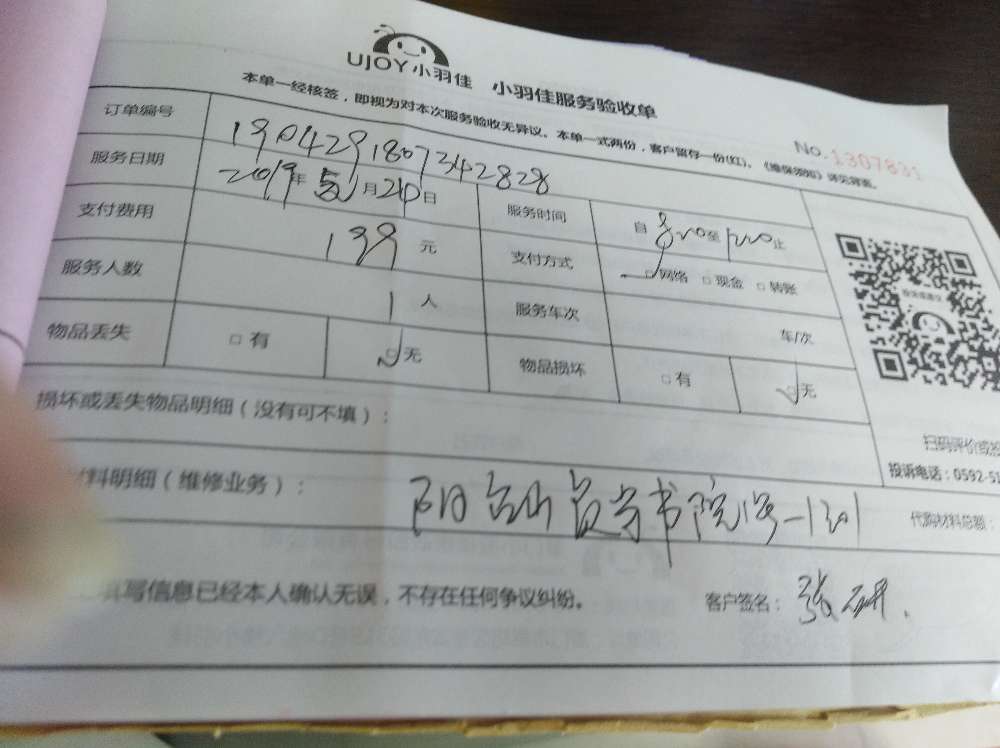 UJOY小羽佳 小羽佳服务验收单
本单一经核签，即视为对本次服务验收无异议。本单一式两份，客户留存一份(红)。《维保须知》详见背面。
No.1307831
订单编号 190429180734282​8
服务日期 2019年 月 日 服务时间 自 至 止
支付费用 199元 支付方式 □网络 □现金 □转账
服务人数 1人 服务车次 车/次
物品丢失 □有 □无 物品损坏 □有 □无
扫码评价或投
损坏或丢失物品明细（没有可不填）：
投诉电话：0592-5
料明细（维修业务）： 书院 代购材料总额：
填写信息已经本人确认无误，不存在任何争议纠纷。 客户签名：张研